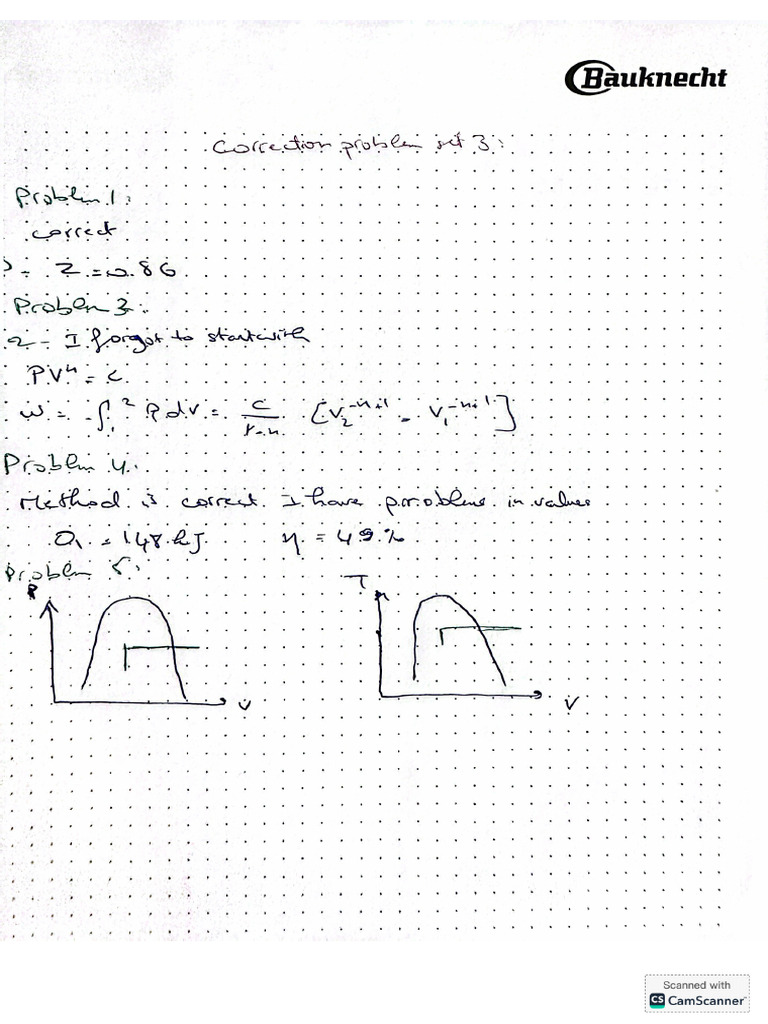 Bauknecht
Correction problem set 3:
Problem 1:
correct
Z = 0.86
Problem 3:
2- I forgot to start with
PVⁿ = c
W = -∫₁² P dV = c/1-n [V₂⁻ⁿ⁺¹ - V₁⁻ⁿ⁺¹]
Problem 4:
Method is correct I have problems in values
Q₁ = 148 kJ η = 49%
Problem 5:
P T
V V
Scanned with
CS CamScanner